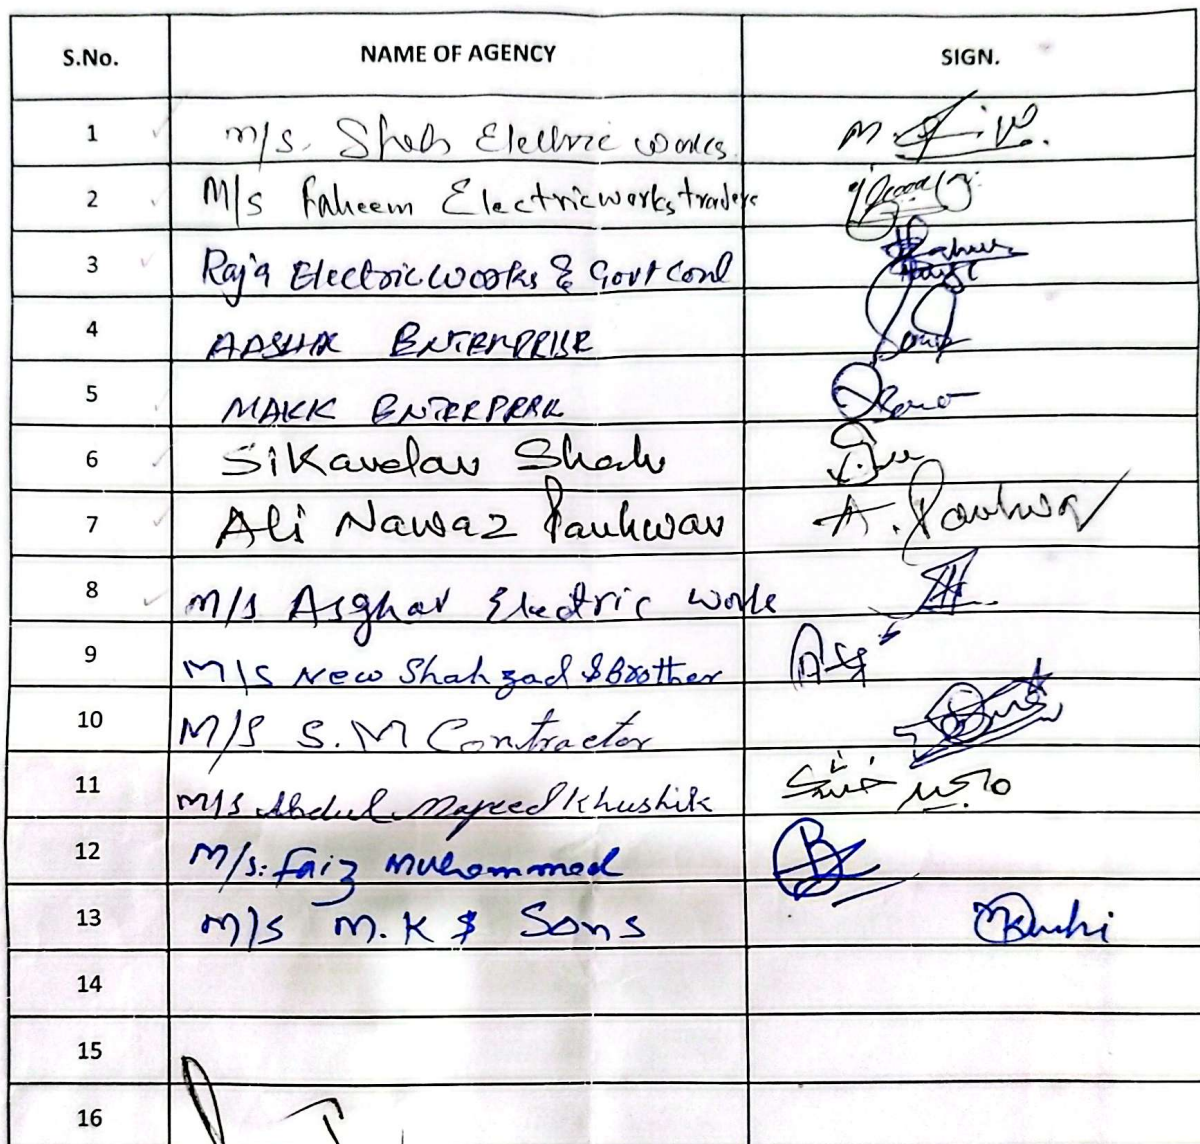 S.No. NAME OF AGENCY SIGN.
1 m/s. Shah Electric works
2 M/s Faheem Electric works traders
3 Raja Electric works & Govt Cont
4 AASHIK ENTERPRISE
5 MAKK ENTERPRISE
6 Sikandar Shah
7 Ali Nawaz Panhwar A. Panhwar
8 m/s Asghar Electric work
9 M/s New Shahzad & Brother
10 M/S S.M Contractor
11 M/s Abdul Majeed Khushik ماجد خشک
12 M/s. Faiz Muhammad
13 m/s M.K & Sons
14
15
16